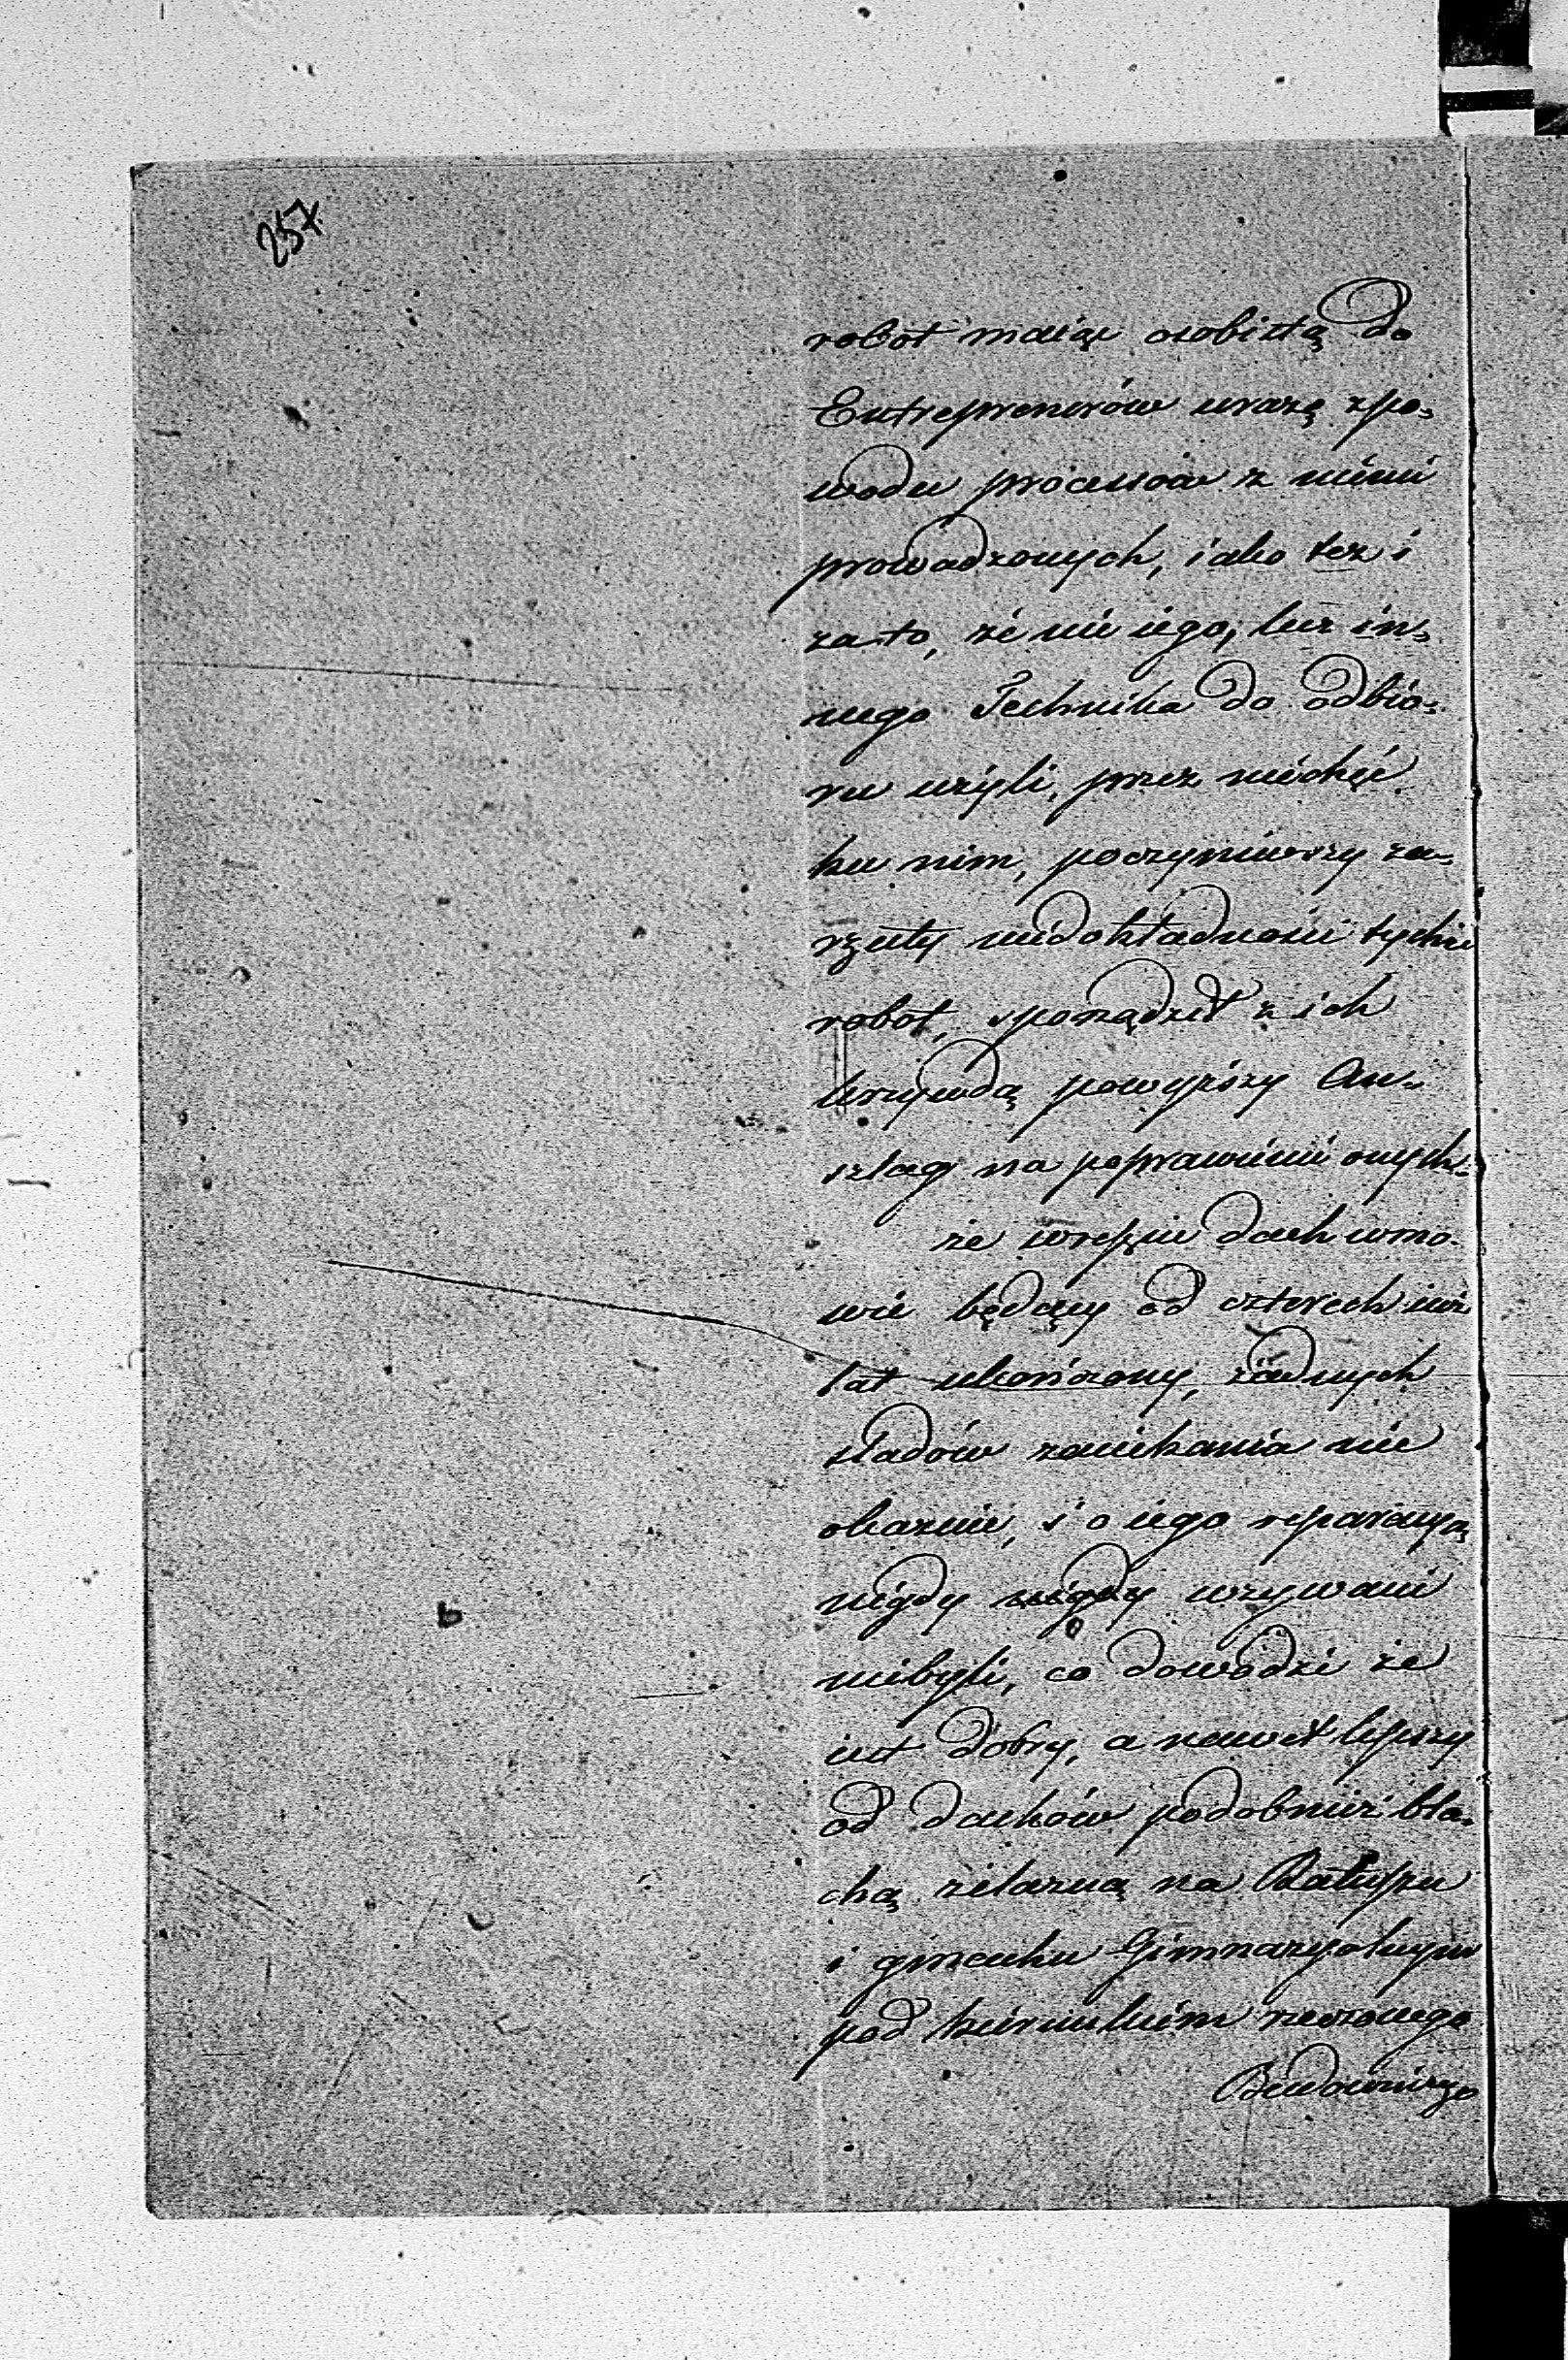 257.
robot maiąc osobistą do
Entreprenerów urazę z po„
wodu processów z niémi
prowadzonych, iako też i
za to, że nie iego, lecz in„
nego Technika do odbio„
ru użyli, przez niechęć
ku nim, poczyniwszy za„
rzuty niedokładności tychże
robot, sporządził z ich
krzywdą powyższy An„
szlag na poprawienie onych„
że wreszcie dach wmo„
wie będący od czterech iuż
lat ukończony, żadnych
sladów zaciekania nie
okazuie, i o iego reparacyą
nigdy nigdy wzywani
niebyli, co dowodzi że
iest dobry, a nawet lepszy
od dachów podobnież bla„
chą żelazną na Ratuszu
i gmachu Gimnazyalnym
pod kierunkiem rzeczonego
Budowniczego